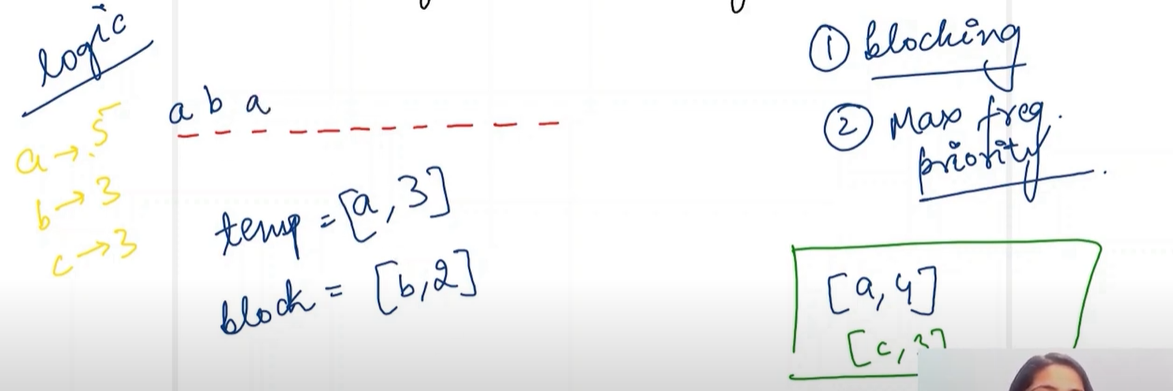 logic
a → 5
b → 3
c → 3
a b a
temp = [a, 3]
block = [b, 2]
① blocking
② Max freq.
priority.
[a, 4]
[c, 3]